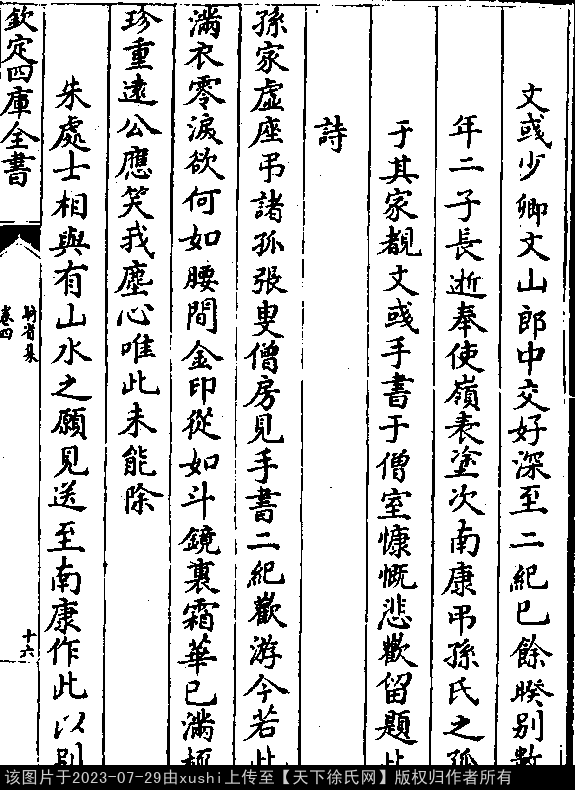 文彧少卿文山郎中交好深至二紀已餘暌别數
年二子長逝奉使嶺表塗次南康弔孫氏之孤
于其家覩文彧手書于僧室慷慨悲歡留題此
詩
孫家虛座弔諸孤張叟僧房見手書二紀歡游今若此
滿衣零淚欲何如腰間金印從如斗鏡裏霜華已滿梳
珍重遠公應笑我塵心唯此未能除
朱處士相與有山水之願見送至南康作此以别
欽定四庫全書
卷四
十六
该图片于2023-07-29由xushi上传至【天下徐氏网】版权归作者所有